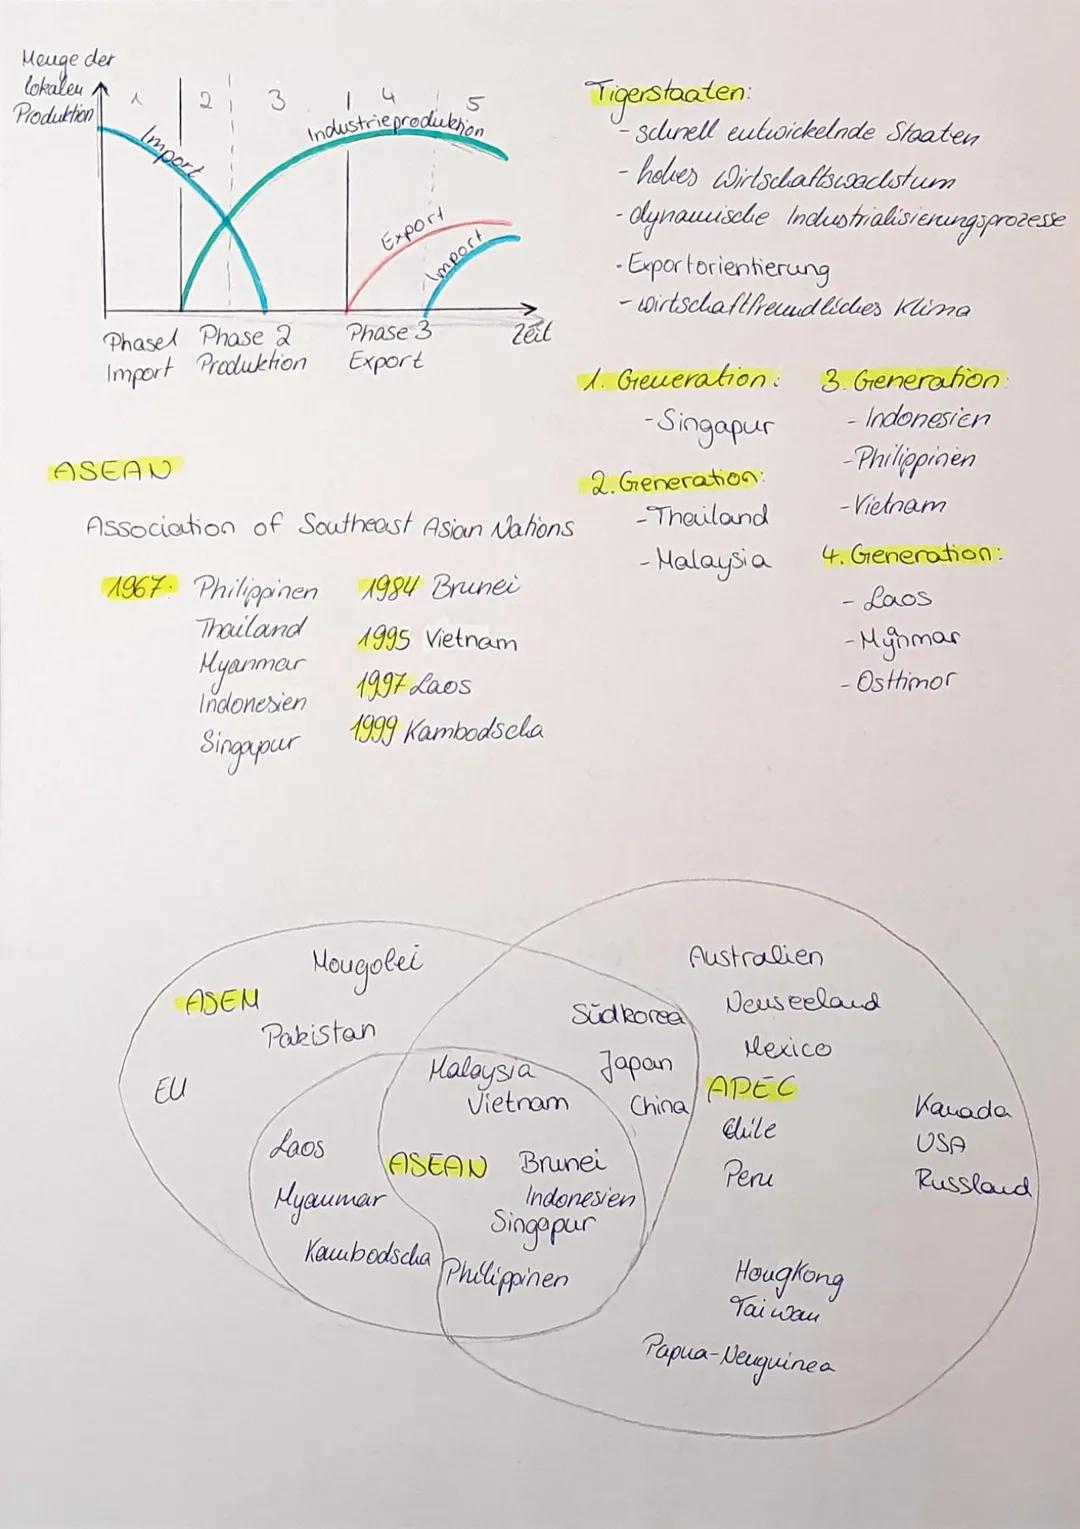 Menge der
lokalen
Produktion
1 2 3 4 5
Import
Industrieproduktion
Export
Import
Phase 1 Phase 2 Phase 3 Zeit
Import Produktion Export
Tigerstaaten:
- schnell entwickelnde Staaten
- hohes Wirtschaftswachstum
- dynamische Industrialisierungsprozesse
- Exportorientierung
- wirtschaftfreundliches Klima
1. Generation:
- Singapur
2. Generation:
- Thailand
- Malaysia
3. Generation:
- Indonesien
- Philippinen
- Vietnam
4. Generation:
- Laos
- Mynmar
- Osttimor
ASEAN
Association of Southeast Asian Nations
1967: Philippinen
Thailand
Myanmar
Indonesien
Singapur
1984 Brunei
1995 Vietnam
1997 Laos
1999 Kambodscha
Mongolei
ASEM
Pakistan
EU
Südkorea
Japan
China
Malaysia
Vietnam
Laos
Myanmar
Kambodscha
ASEAN
Brunei
Indonesien
Singapur
Philippinen
Australien
Neuseeland
Mexico
APEC
Chile
Peru
Kanada
USA
Russland
Hongkong
Taiwan
Papua-Neuguinea